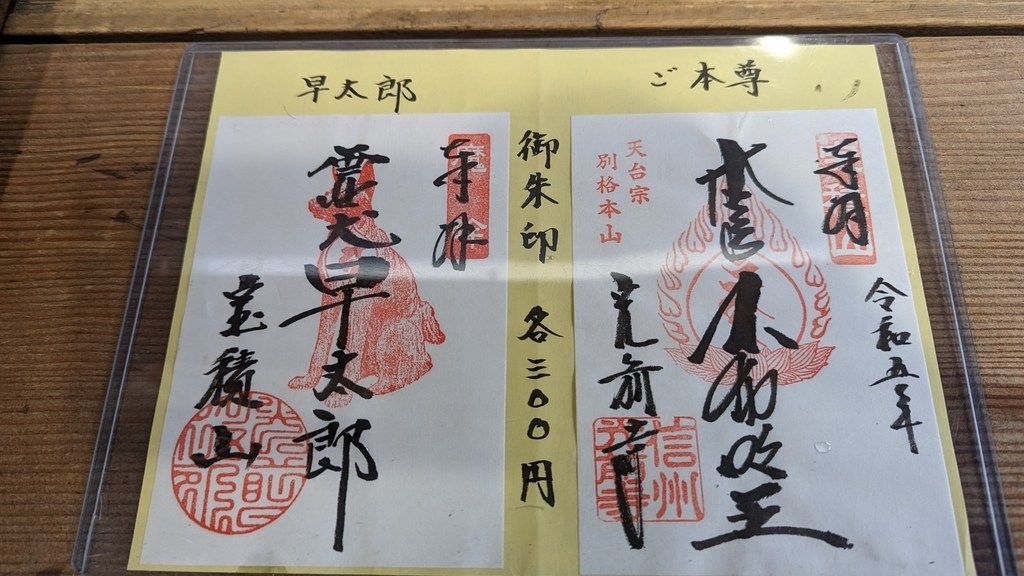 ご本尊
奉拝
天台宗
別格本山
本尊不動明王
光前寺
信州
令和五年
御朱印 各三〇〇円
早太郎
奉拝
霊犬早太郎
宝積山